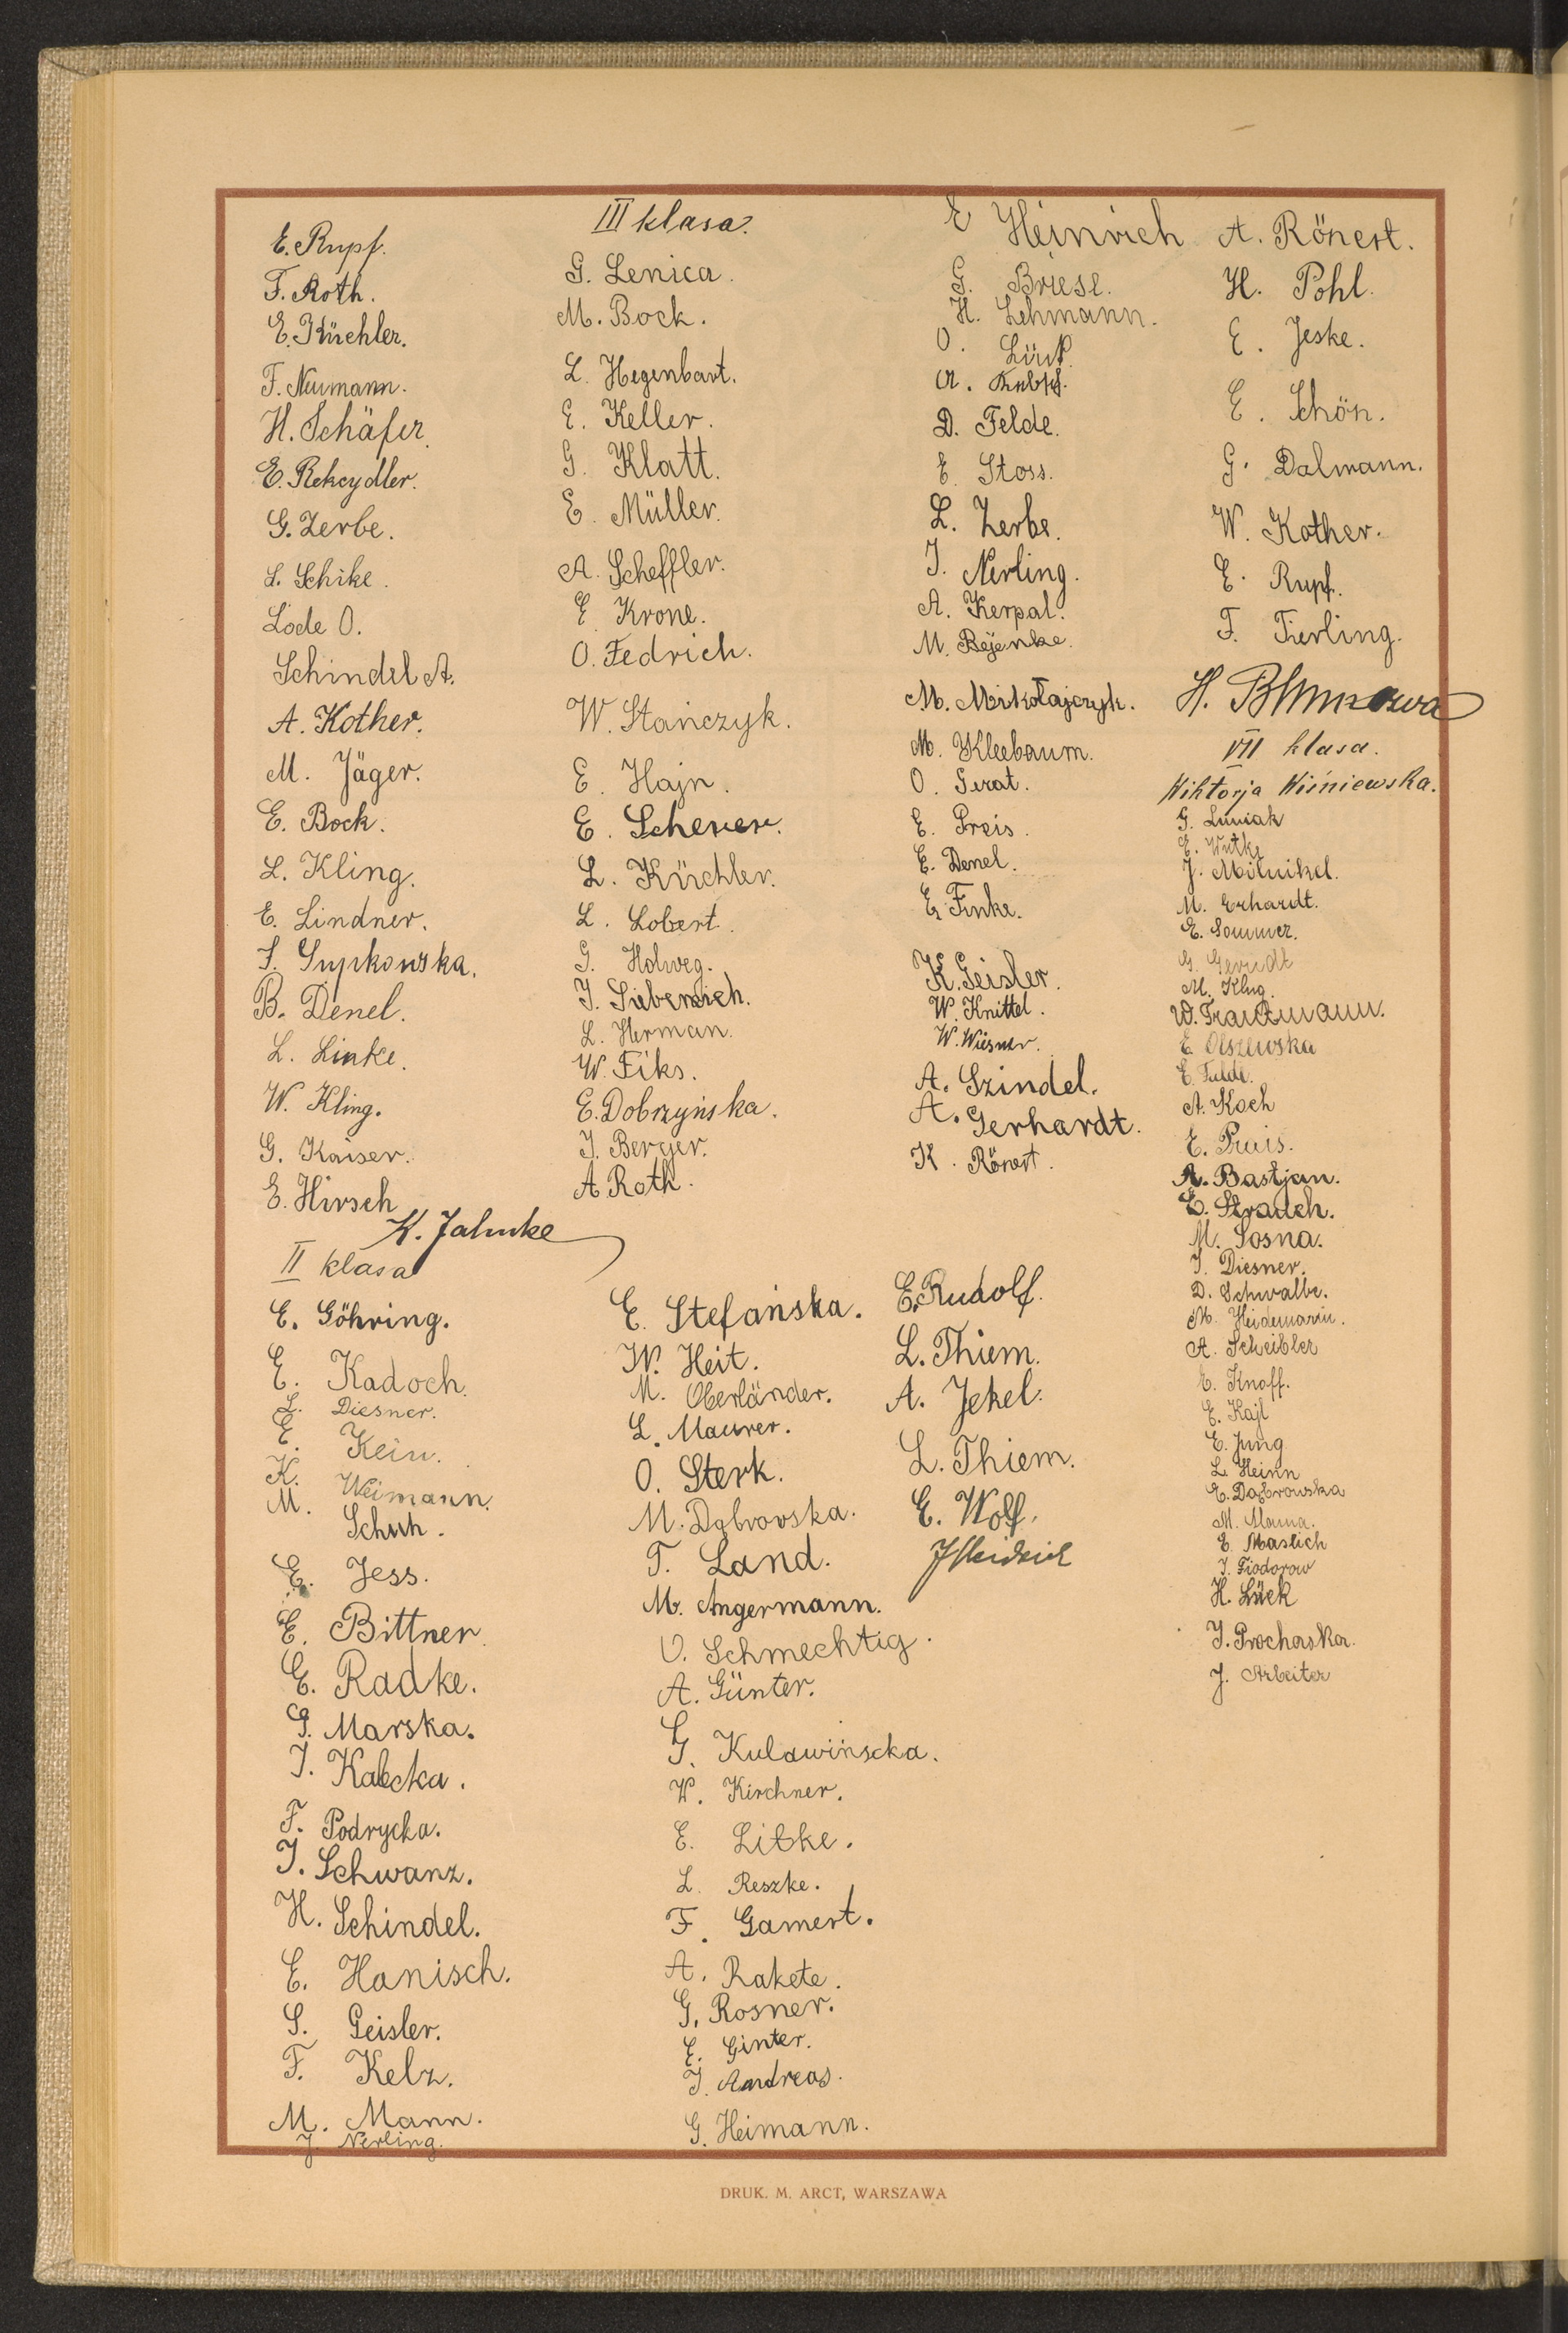 E. Rupf.
F. Roth.
E. Küchler.
F. Neumann.
H. Schäfer.
E. Rekcydler.
G. Zerbe.
L. Schike.
Lode O.
Schindel A.
A. Kother.
M. Jäger.
E. Bock.
L. Kling.
E. Lindner.
B. Denel.
L. Linke.
W. Kling.
G. Kaiser.
E. Hirsch
K. Jahnke
II klasa
E. Göhring.
E. Kadoch.
L. Diesner.
E. Kein.
K. Weimann.
M. Schuh.
E. Jess.
E. Bittner.
E. Radke.
G. Marska.
J. Kalecka.
F. Podrycka.
J. Schwanz.
H. Schindel.
E. Hanisch.
S. Geisler.
F. Kelz.
M. Mann.
J Nerling.
III klasa.
G. Lenica.
M. Bock.
L. Hegenbart.
E. Keller.
G. Klatt.
E. Müller.
A. Scheffler.
E. Krone.
O. Fedrich.
W. Stańczyk.
E. Hajn.
E. Scherer.
L. Küchler.
L. Lobert.
G. Holweg.
J. Siebeneich.
L. Herman.
W. Fiks.
E. Dobrzyńska.
J. Berger.
A. Roth.
E. Stefańska.
W. Heit.
M. Oberländer.
L. Maurer.
O. Sterk.
M. Dąbrowska.
T. Land.
M. Angermann.
O. Schmechtig.
A. Günter.
G. Kulawińscka.
W. Kirchner.
E. Litke.
L. Reszke.
F. Gamert.
A. Rakete.
G. Rosner.
E. Ginter.
J. Andreas.
G. Heimann.
E Heinrich
G. Briese.
H. Lehmann.
O. Lück.
A.
D. Felde.
E. Stoss.
L. Zerbe.
J. Nerling.
A. Kerpal.
M. Bejenke.
M. Mikołajczyk.
M. Kleebaum.
O. Serat.
E. Preis.
E. Denel.
E. Finke.
K. Geisler.
W. Knittel.
W. Wiesner.
A. Szindel.
A. Gerhardt.
K. Rönert.
E. Rudolf.
L. Thiem.
A. Jekel.
L. Thiem.
E. Wolf.
A. Rönert.
H. Pohl.
E. Jeske.
E. Schön.
G. Dalmann.
W. Kother.
E. Rupf.
F. Tierling.
H.
VII klasa.
Wiktorja Wiśniewska.
G. Luniak
E. Wutke
J. Milnikel.
M. Erhardt.
E. Sommer.
G. Gerndt
M. Klug.
W. Trautmann.
E. Olszewska
E. Tulde.
A. Koch
E. Preis.
A. Bastjan.
E. Strauch.
M. Sosna.
J. Diesner.
D. Schwalbe.
M. Heidemann.
A. Scheibler
E. Knoff.
E. Kajl
E. Jung
L. Heinn
E. Dąbrowska
M. Mauna.
E. Maslich
J. Fiodorow
H. Lück
J. Prochaska.
J. Arbeiter
DRUK. M. ARCT, WARSZAWA